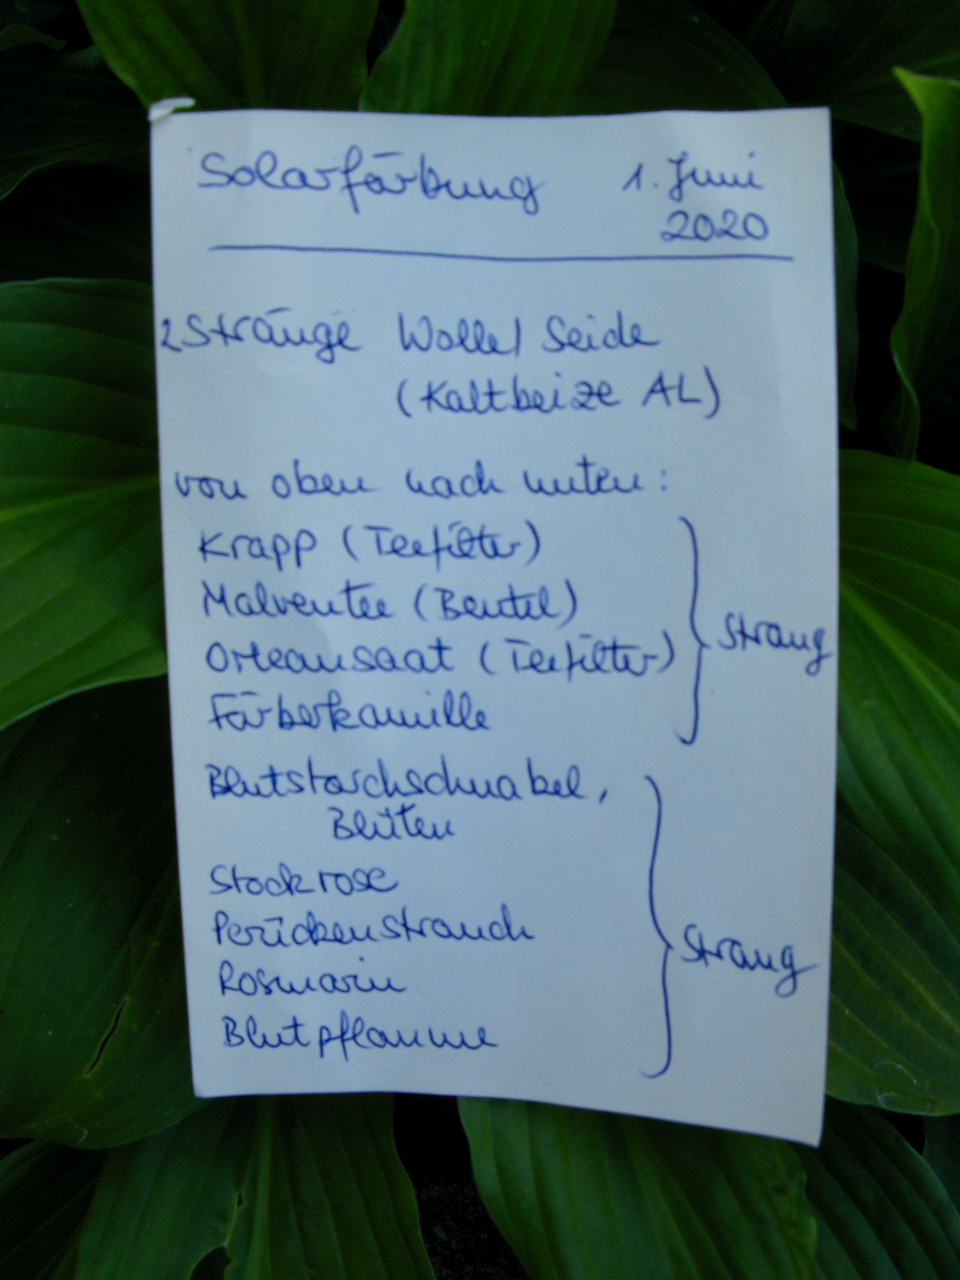 Solarfärbung 1. Juni
2020
2 Stränge Wolle/Seide
(Kaltbeize AL)
von oben nach unten:
Krapp (Teefilter)
Malventee (Beutel)
Orleansaat (Teefilter)
Färberkamille
Strang
Blutstorchschnabel,
Blüten
Stockrose
Perückenstrauch
Rosmarin
Blutpflaume
Strang